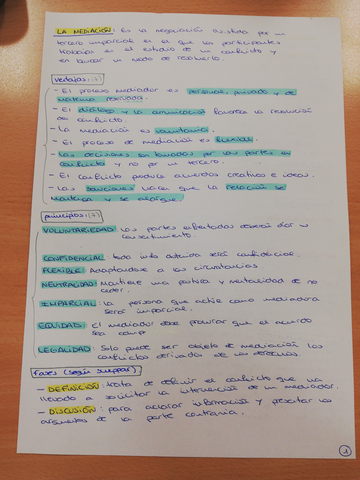 LA MEDIACIÓN: Es la negociación asistida por un
tercero imparcial en el que los participantes
trabajan en el estudio de un conflicto y
en buscar un modo de resolverlo.
ventajas: (7)
- El proceso mediador es personal, privado y de
materia reservada.
- El diálogo y la comunicación favorece la resolución
del conflicto.
- La mediación es voluntaria.
- El proceso de mediación es
- Las decisiones son tomadas por las partes en
conflicto y no por un tercero.
- El conflicto produce acuerdos creativos e ideas.
- Las soluciones hacen que la relación se
mantenga y se alargue.
principios: (7)
VOLUNTARIEDAD: las partes deberán dar su
consentimiento.
CONFIDENCIAL: toda info obtenida será confidencial.
FLEXIBLE: Adaptándose a las circunstancias
NEUTRALIDAD: Mantiene una postura y neutralidad de no
ceder.
IMPARCIAL: la persona que actúe como mediadora
será imparcial.
EQUIDAD: El mediador debe procurar que el acuerdo
sea comp
LEGALIDAD: Solo puede ser objeto de mediación los
conflictos derivados de un
fases (según
- DEFINICIÓN: trata de definir el conflicto que va
llevado a solicitar la intervención de un mediador.
- DISCUSIÓN: para aclarar información y presentar los
argumentos de la parte contraria.
1